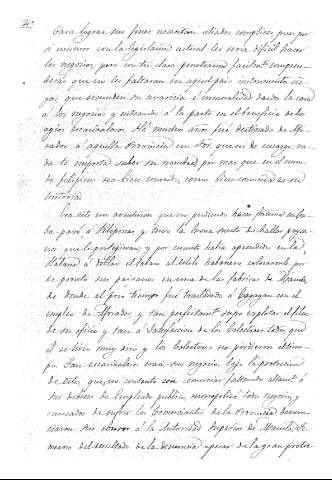 Para lograr sus fines necesitan aliados complices, pues por
si mismos con la legislacion actual les seria dificil hacer
los negocios, pero con tu clara penetracion facilmente compren-
deras que no les faltaran en aquel pais instrumentos
que secunden su avaricia é inmoralidad dando la cara
á los negocios y entrando á la parte en el beneficio de los
agios Há muchos años fué destinado de Afo-
rador á aquella Provincia un Sor. que en
da te importa saber su nombre por mas que en el mun-
do filipino sea bien conocido, como bien conocida es su
historia.
Era este un aventurero que no pudiendo hacer fortuna en Cu-
ba pasó á Filipinas, y tuvo la buena suerte de hallar paysa-
nos que le protegieran, y por cuanto habia aprendido en la
Habana á el tabaco al estilo habanero, colocaronle por
de pronto sus paisanos en una de las fabricas de Manila,
de donde al poco tiempo fué trasladado á Cagayan con el
empleo de Aforador, y tan perfectamente supo explotar el filon
de su oficio y tan á satisfaccion de los Colectores todos, que
el se hizo muy rico y los Colectores no perdieron el tiem-
po. Tan escandalosos eran sus negocios bajo la proteccion
de estos, que, no contento con comerciar faltando á
sus deberes de empleado publico, monopolizó todo negocio, y
cansados de sufrir los Comerciantes de la Provincia denun-
ciaron sus abusos á la Autoridad Superior de Manila. Te-
meroso del resultado de la denuncia apesar de la gran protec-